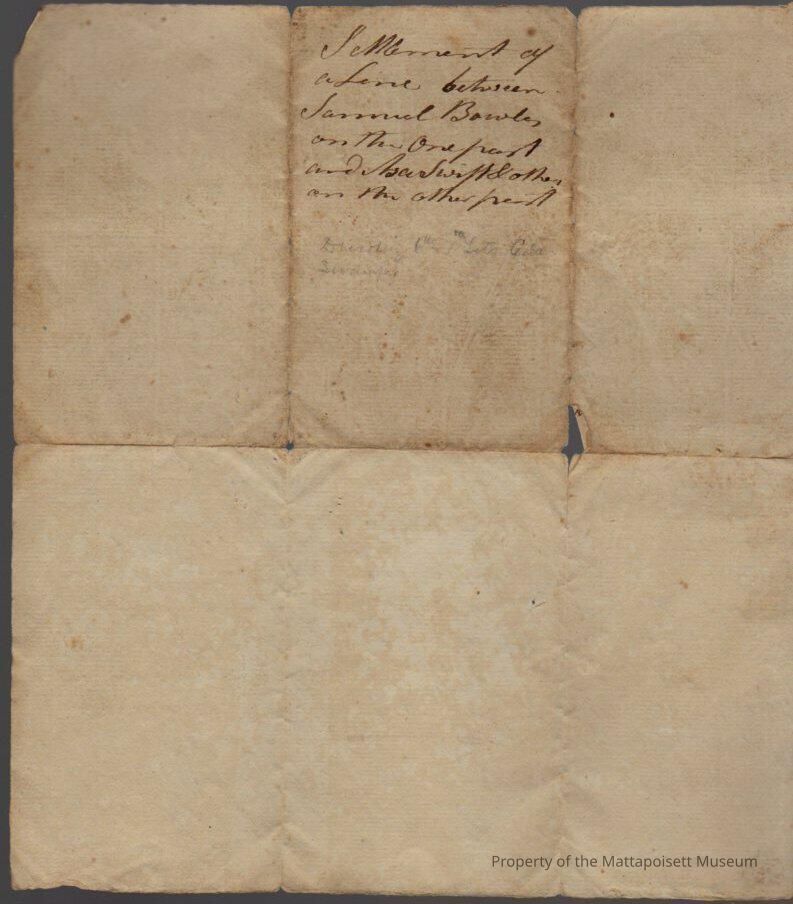 Settlement of
a Line between
Samuel Bowles
on the One part
and Asa Swift & other
on the other part
6th Lots
Property of the Mattapoisett Museum